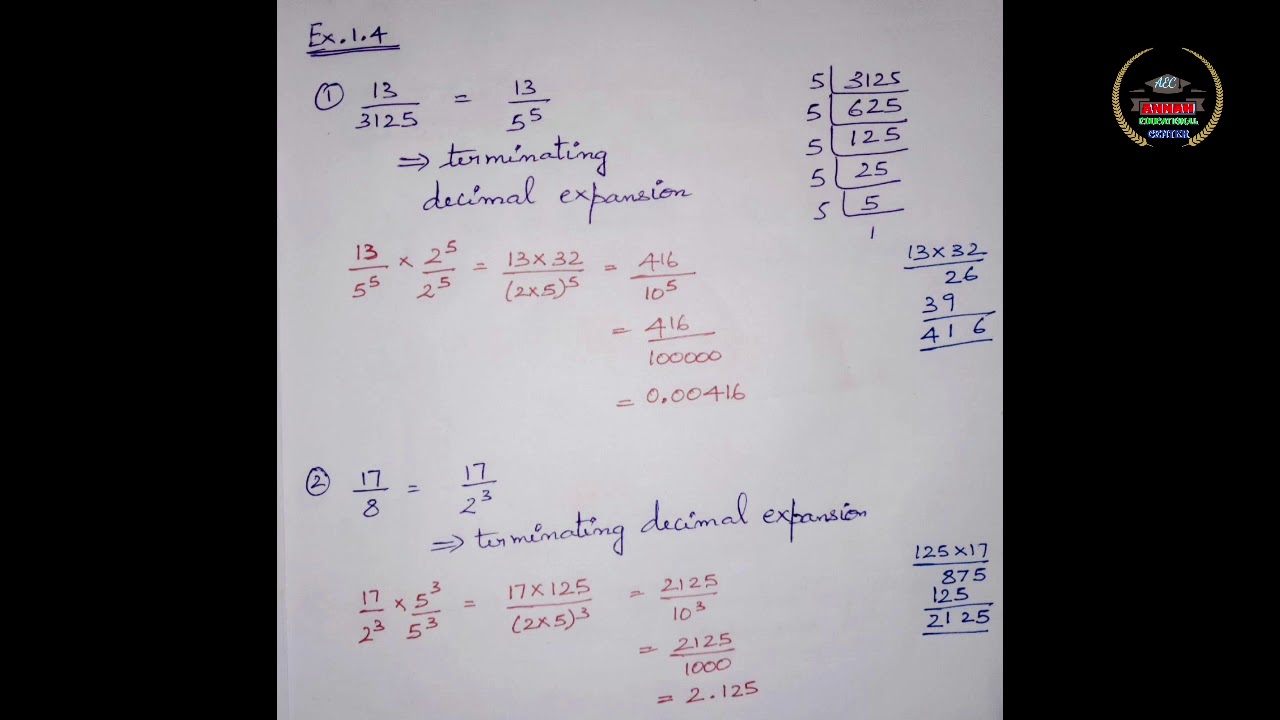 Ex.1.4
① 13/3125 = 13/5⁵
⇒ terminating
decimal expansion
5 | 3125
5 | 625
5 | 125
5 | 25
5 | 5
1
13/5⁵ × 2⁵/2⁵ = 13×32/(2×5)⁵ = 416/10⁵
= 416/100000
= 0.00416
13×32
26
39
416
② 17/8 = 17/2³
⇒ terminating decimal expansion
17/2³ × 5³/5³ = 17×125/(2×5)³ = 2125/10³
= 2125/1000
= 2.125
125×17
875
125
2125
AEC
ANNAH
EDUCATIONAL
CENTER